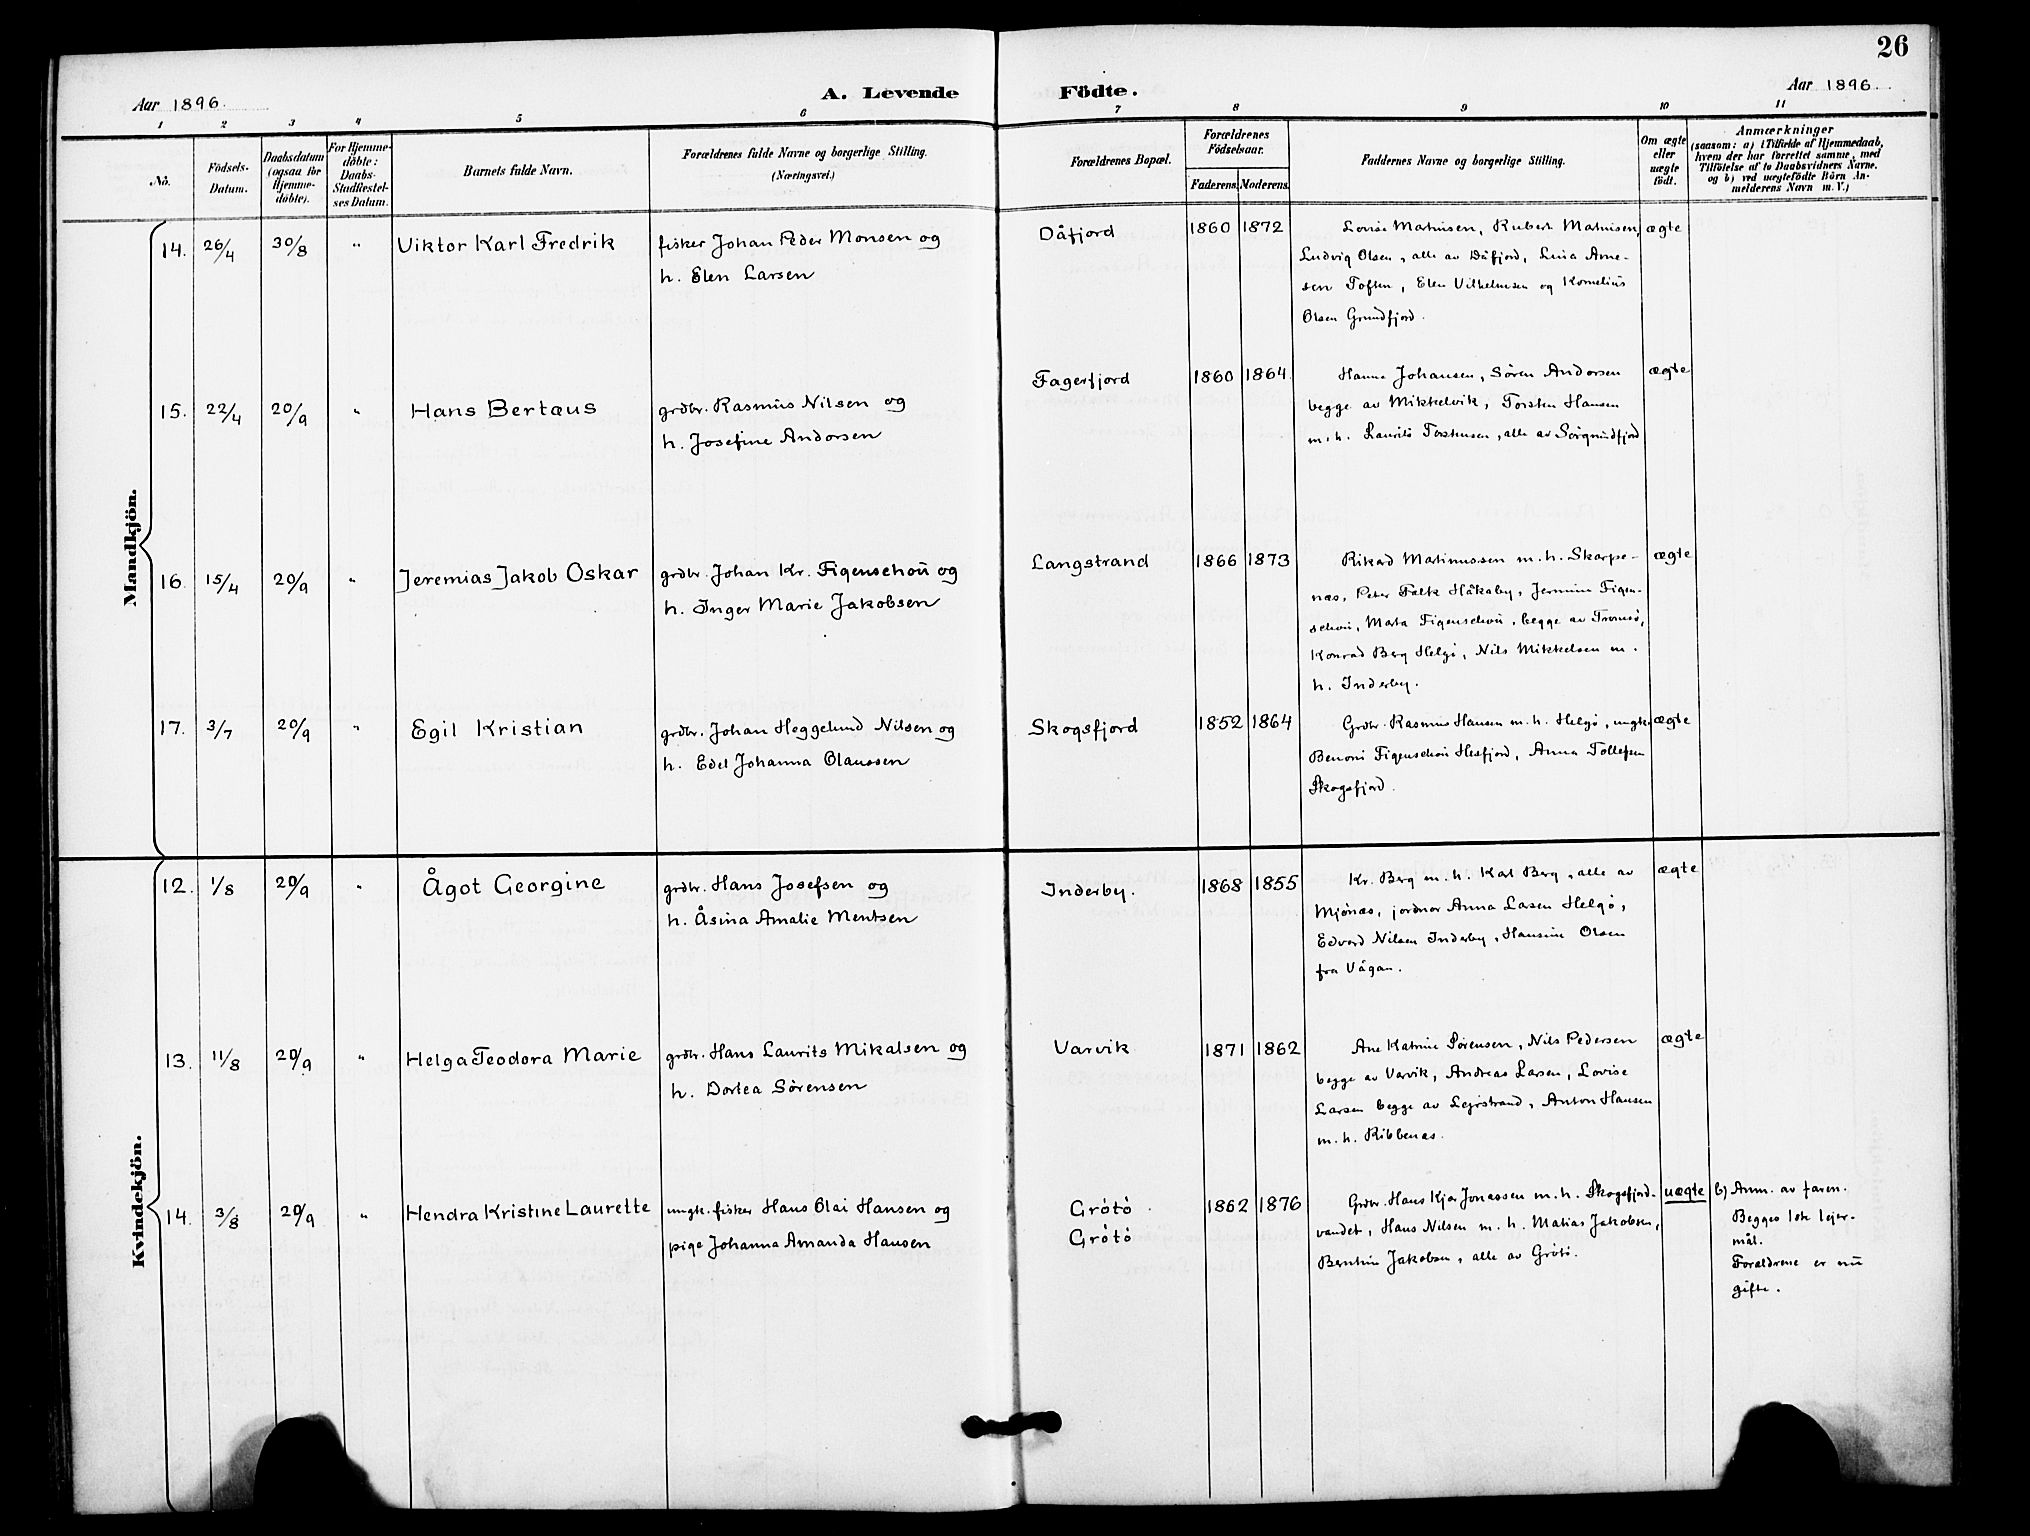 26
Aar 1896.
A. Levende Födte.
Aar 1896.
1 2 3 4 5 6 7 8 9 10 11
No.
Födsels-
Datum.
Daabsdatum
(ogsaa for
Hjemme-
døbte).
For Hjemme-
døbte:
Daabs-
Stadfæstel-
ses Datum.
Barnets fulde Navn.
Forældrenes fulde Navne og borgerlige Stilling.
(Næringsvei.)
Forældrenes Bopæl.
Forældrenes
Födselsaar.
Faderens. Moderens.
Faddernes Navne og borgerlige Stilling.
Om ægte
eller
uægte
födt.
Anmærkninger
(saasom: a) i Tilfælde af Hjemmedaab,
hvem der har forrettet samme, med
Tilföielse af to Daabsvidners Navne.
og b) ved uægtefödte Börn An-
melderens Navn m. V.)
Mandkjön.
14. 26/4 30/8 " Viktor Karl Fredrik
fisker Johan Peder Monsen og
h. Elen Larsen
Dåfjord 1860 1872
Lovise Martinsen, Rubert Martinsen,
Ludvig Olsen, alle av Dåfjord, Lina Arne-
sen Toften, Elen Vilhelmsen og Kornelius
Olsen Grundfjord.
ægte
15. 22/4 20/9 " Hans Bertæus
grdbr. Rasmus Nilsen og
h. Josefine Andorsen
Fagerfjord 1860 1864.
Hanna Johansen, Sören Andorsen
begge av Mikkelvik, Torsten Hansen
m. h. Laurits Torstensen, alle av Sörgrundfjord
ægte
16. 15/4 20/9 " Jeremias Jakob Oskar
grdbr. Johan Kr. Figenschou og
h. Inger Marie Jakobsen
Langstrand 1866 1873
Rikard Martinussen m. h. Skarpe-
næs, Peter Falk Håkøby, Jermine Figen-
schou, Marta Figenschou, begge av Tromsö,
Konrad Berg Helgö, Nils Mikkelsen m.
h. Inderby.
ægte
17. 3/7 20/9 " Egil Kristian
grdbr. Johan Heggelund Nilsen og
h. Edel Johanna Olaussen
Skogsfjord 1852 1864
Grdbr. Rasmus Hansen m. h. Helgö, ungk.
Benoni Figenschou Hesfjord, Anna Tollefsen
Skogsfjord.
ægte
Kvindekjön.
12. 1/8 20/9 " Ågot Georgine
grdbr. Hans Josefsen og
h. Åsina Amalie Mentsen
Inderby. 1868 1855
Kr. Berg m. h. Karl Berg, alle av
Mjönæs, jordmor Anna Larsen Helgö,
Edvard Nilsen Inderby, Hansine Olsen
fra Vågan.
ægte
13. 11/8 20/9 " Helga Teodora Marie
grdbr. Hans Laurits Mikalsen og
h. Dortea Sörensen
Varvik 1871 1862
Ane Katrine Sörensen, Nils Pedersen
begge av Varvik, Andreas Larsen, Lovise
Larsen begge av Leirstrand, Anton Hansen
m. h. Ribbenæs.
ægte
14. 3/8 20/9 " Hendra Kristine Laurette
ungk. fisker Hans Olai Hansen og
pige Johanna Amanda Hansen
Grötö.
Grötö
1862 1876
Grdbr. Hans Kjær Jonassen m. h. Skogsfjord-
vandet, Hans Nilsen m. h. Matias Jakobsen,
Berntine Jakobsen, alle av Grötö.
uægte
b) Anm. av faren.
Begges 1ste lejer-
mål.
Forældrene er nu
gifte.